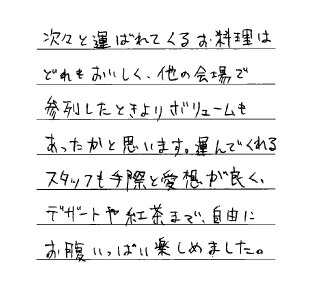 次々と運ばれてくるお料理は
どれもおいしく、他の会場で
参列したときよりボリュームも
あったかと思います。運んでくれる
スタッフも手際と愛想が良く、
デザートや紅茶まで、自由に
お腹いっぱい楽しめました。